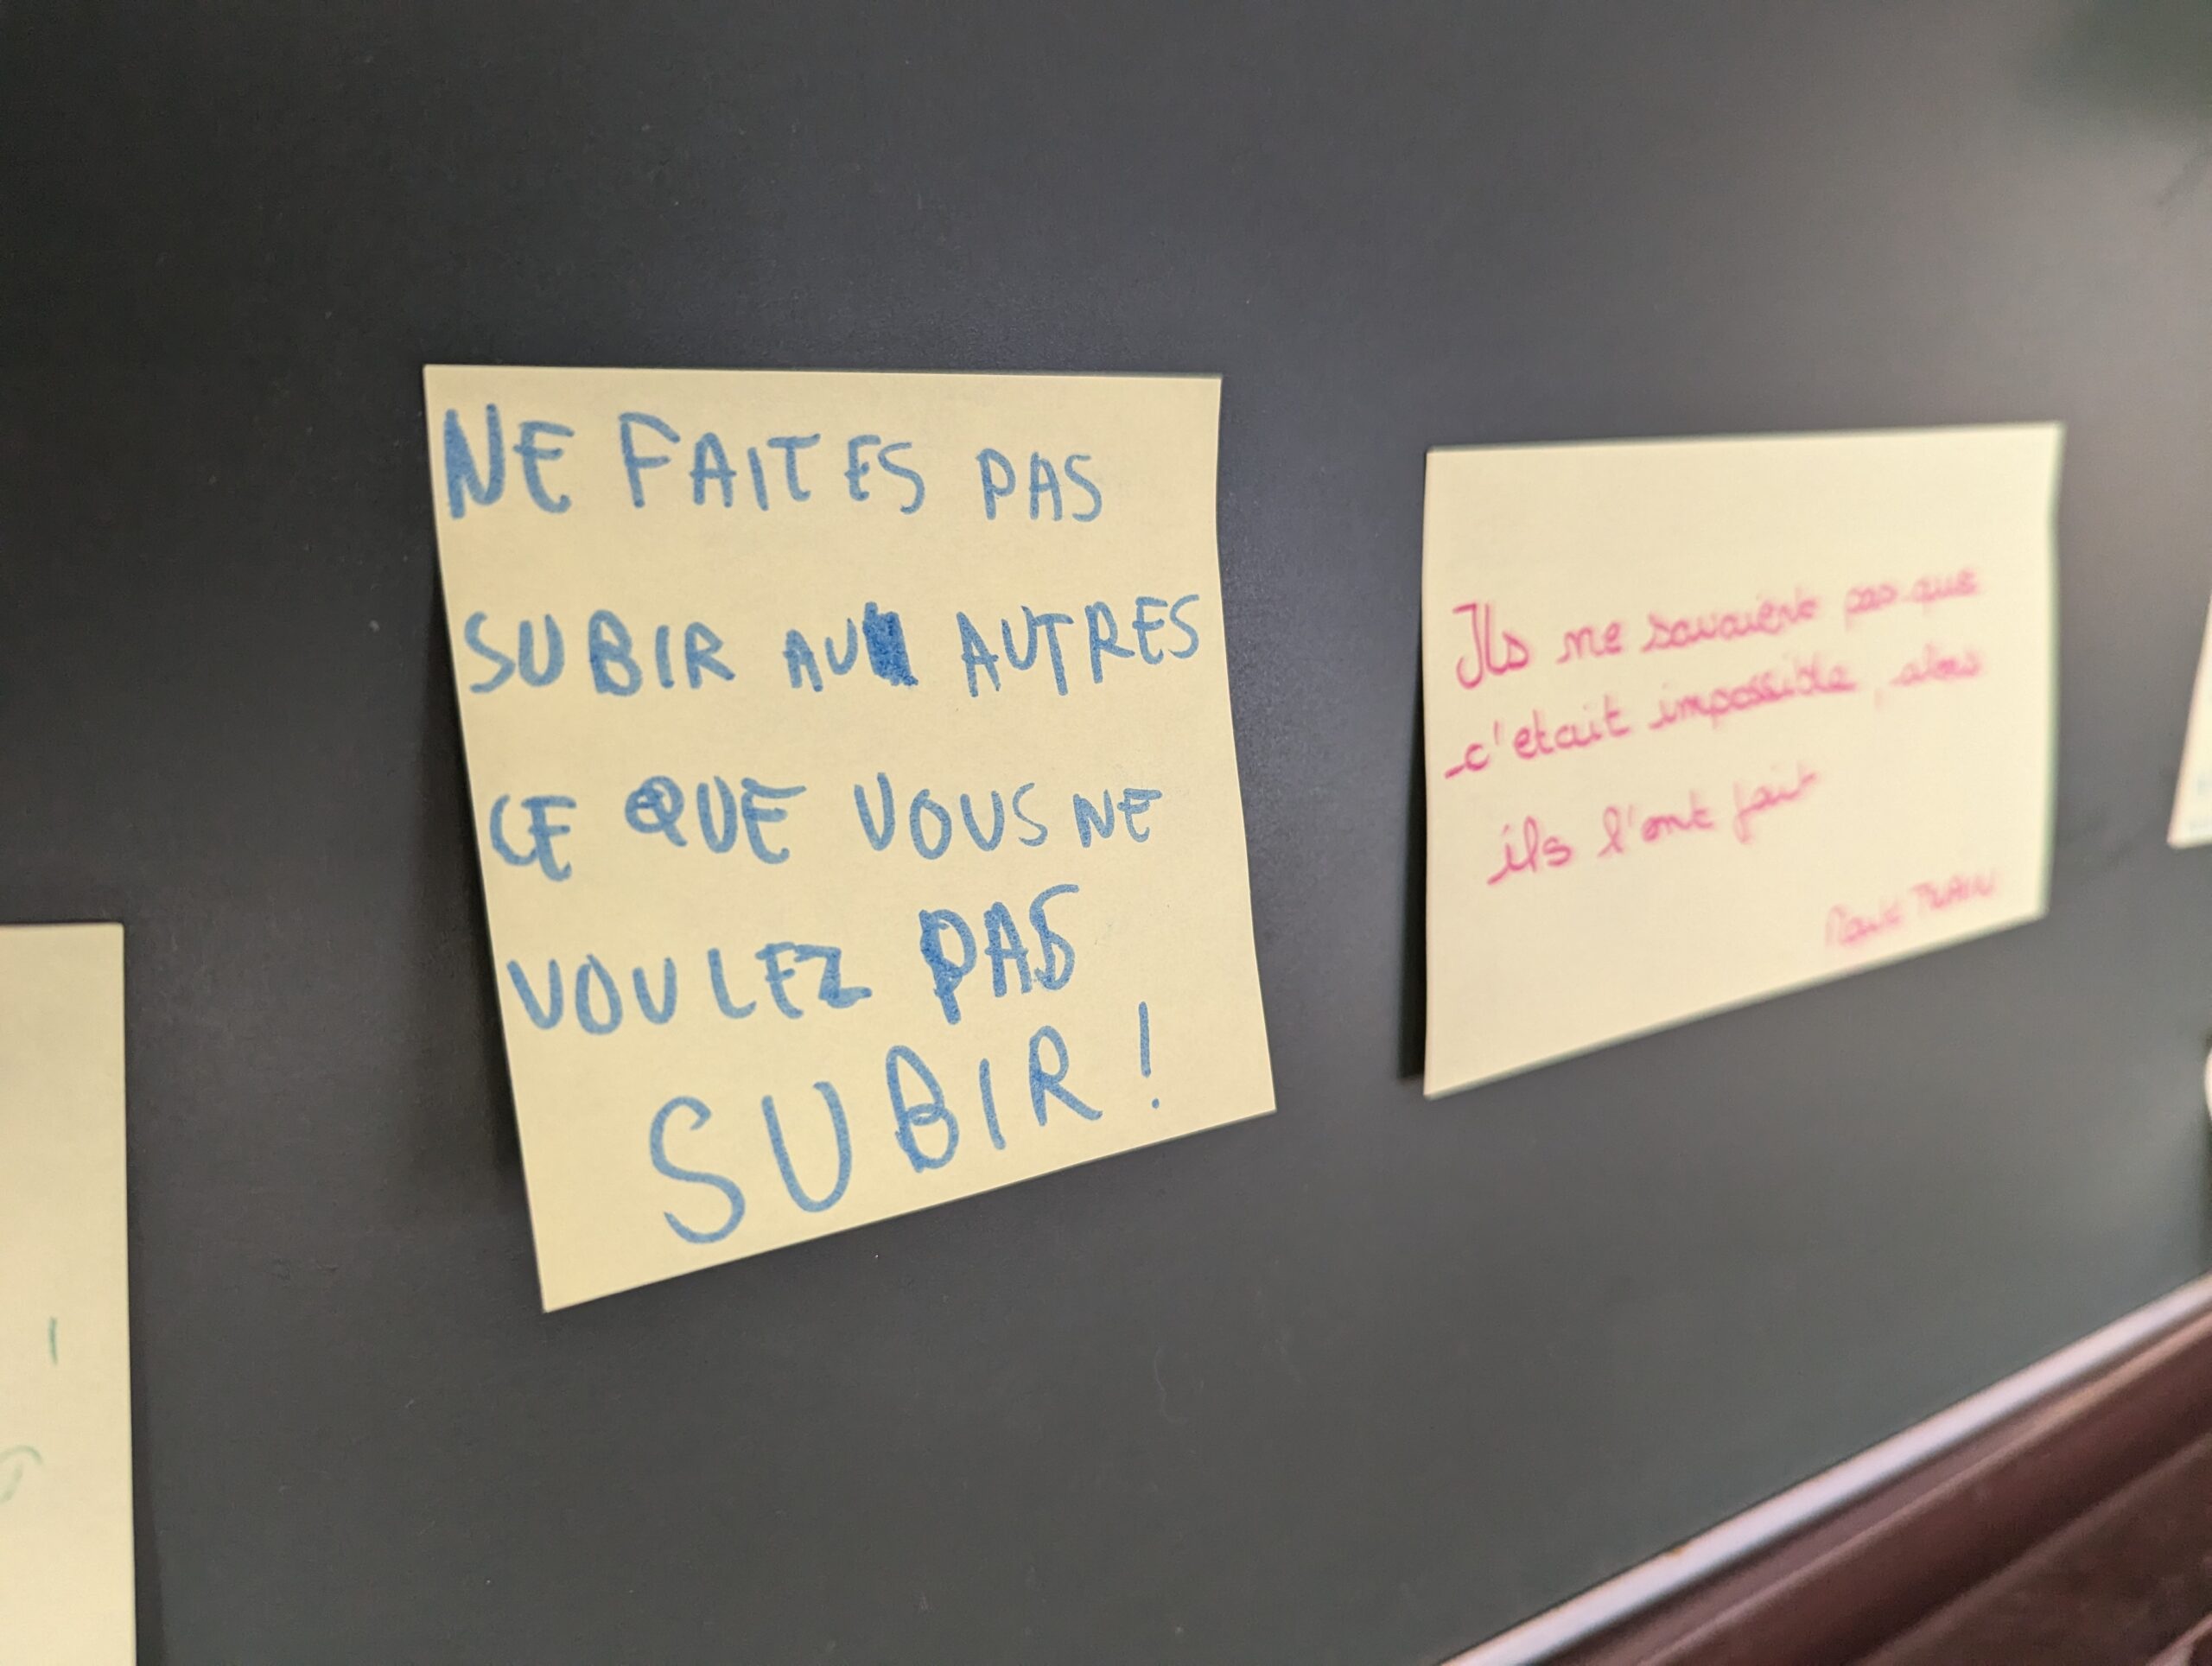 NE FAITES PAS
SUBIR AUX AUTRES
CE QUE VOUS NE
VOULEZ PAS
SUBIR !
Ils ne savaient pas que
c'etait impossible, alors
ils l'ont fait
Mark TWAIN